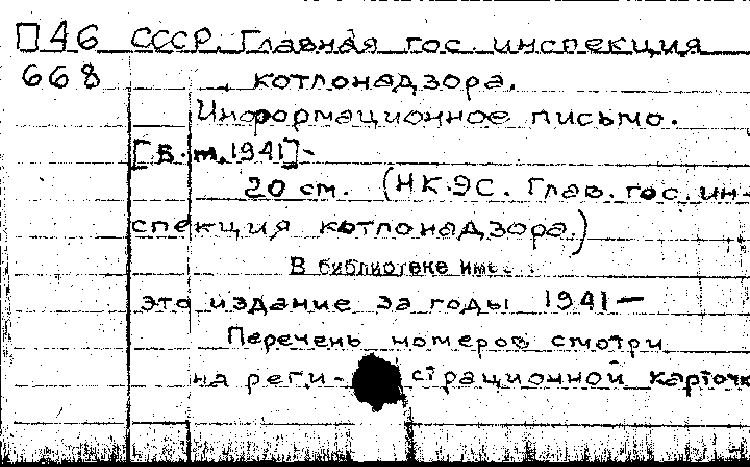 П46 СССР. Главная гос. инспекция
668 котлонадзора.
Информационное письмо.
[Б. м. 1941]-
20 см. (НКЭС. Глав. гос. ин-
спекция котлонадзора.)
В библиотеке
это издание за годы 1941—
Перечень номеров смотри
на реги- страционной карточк